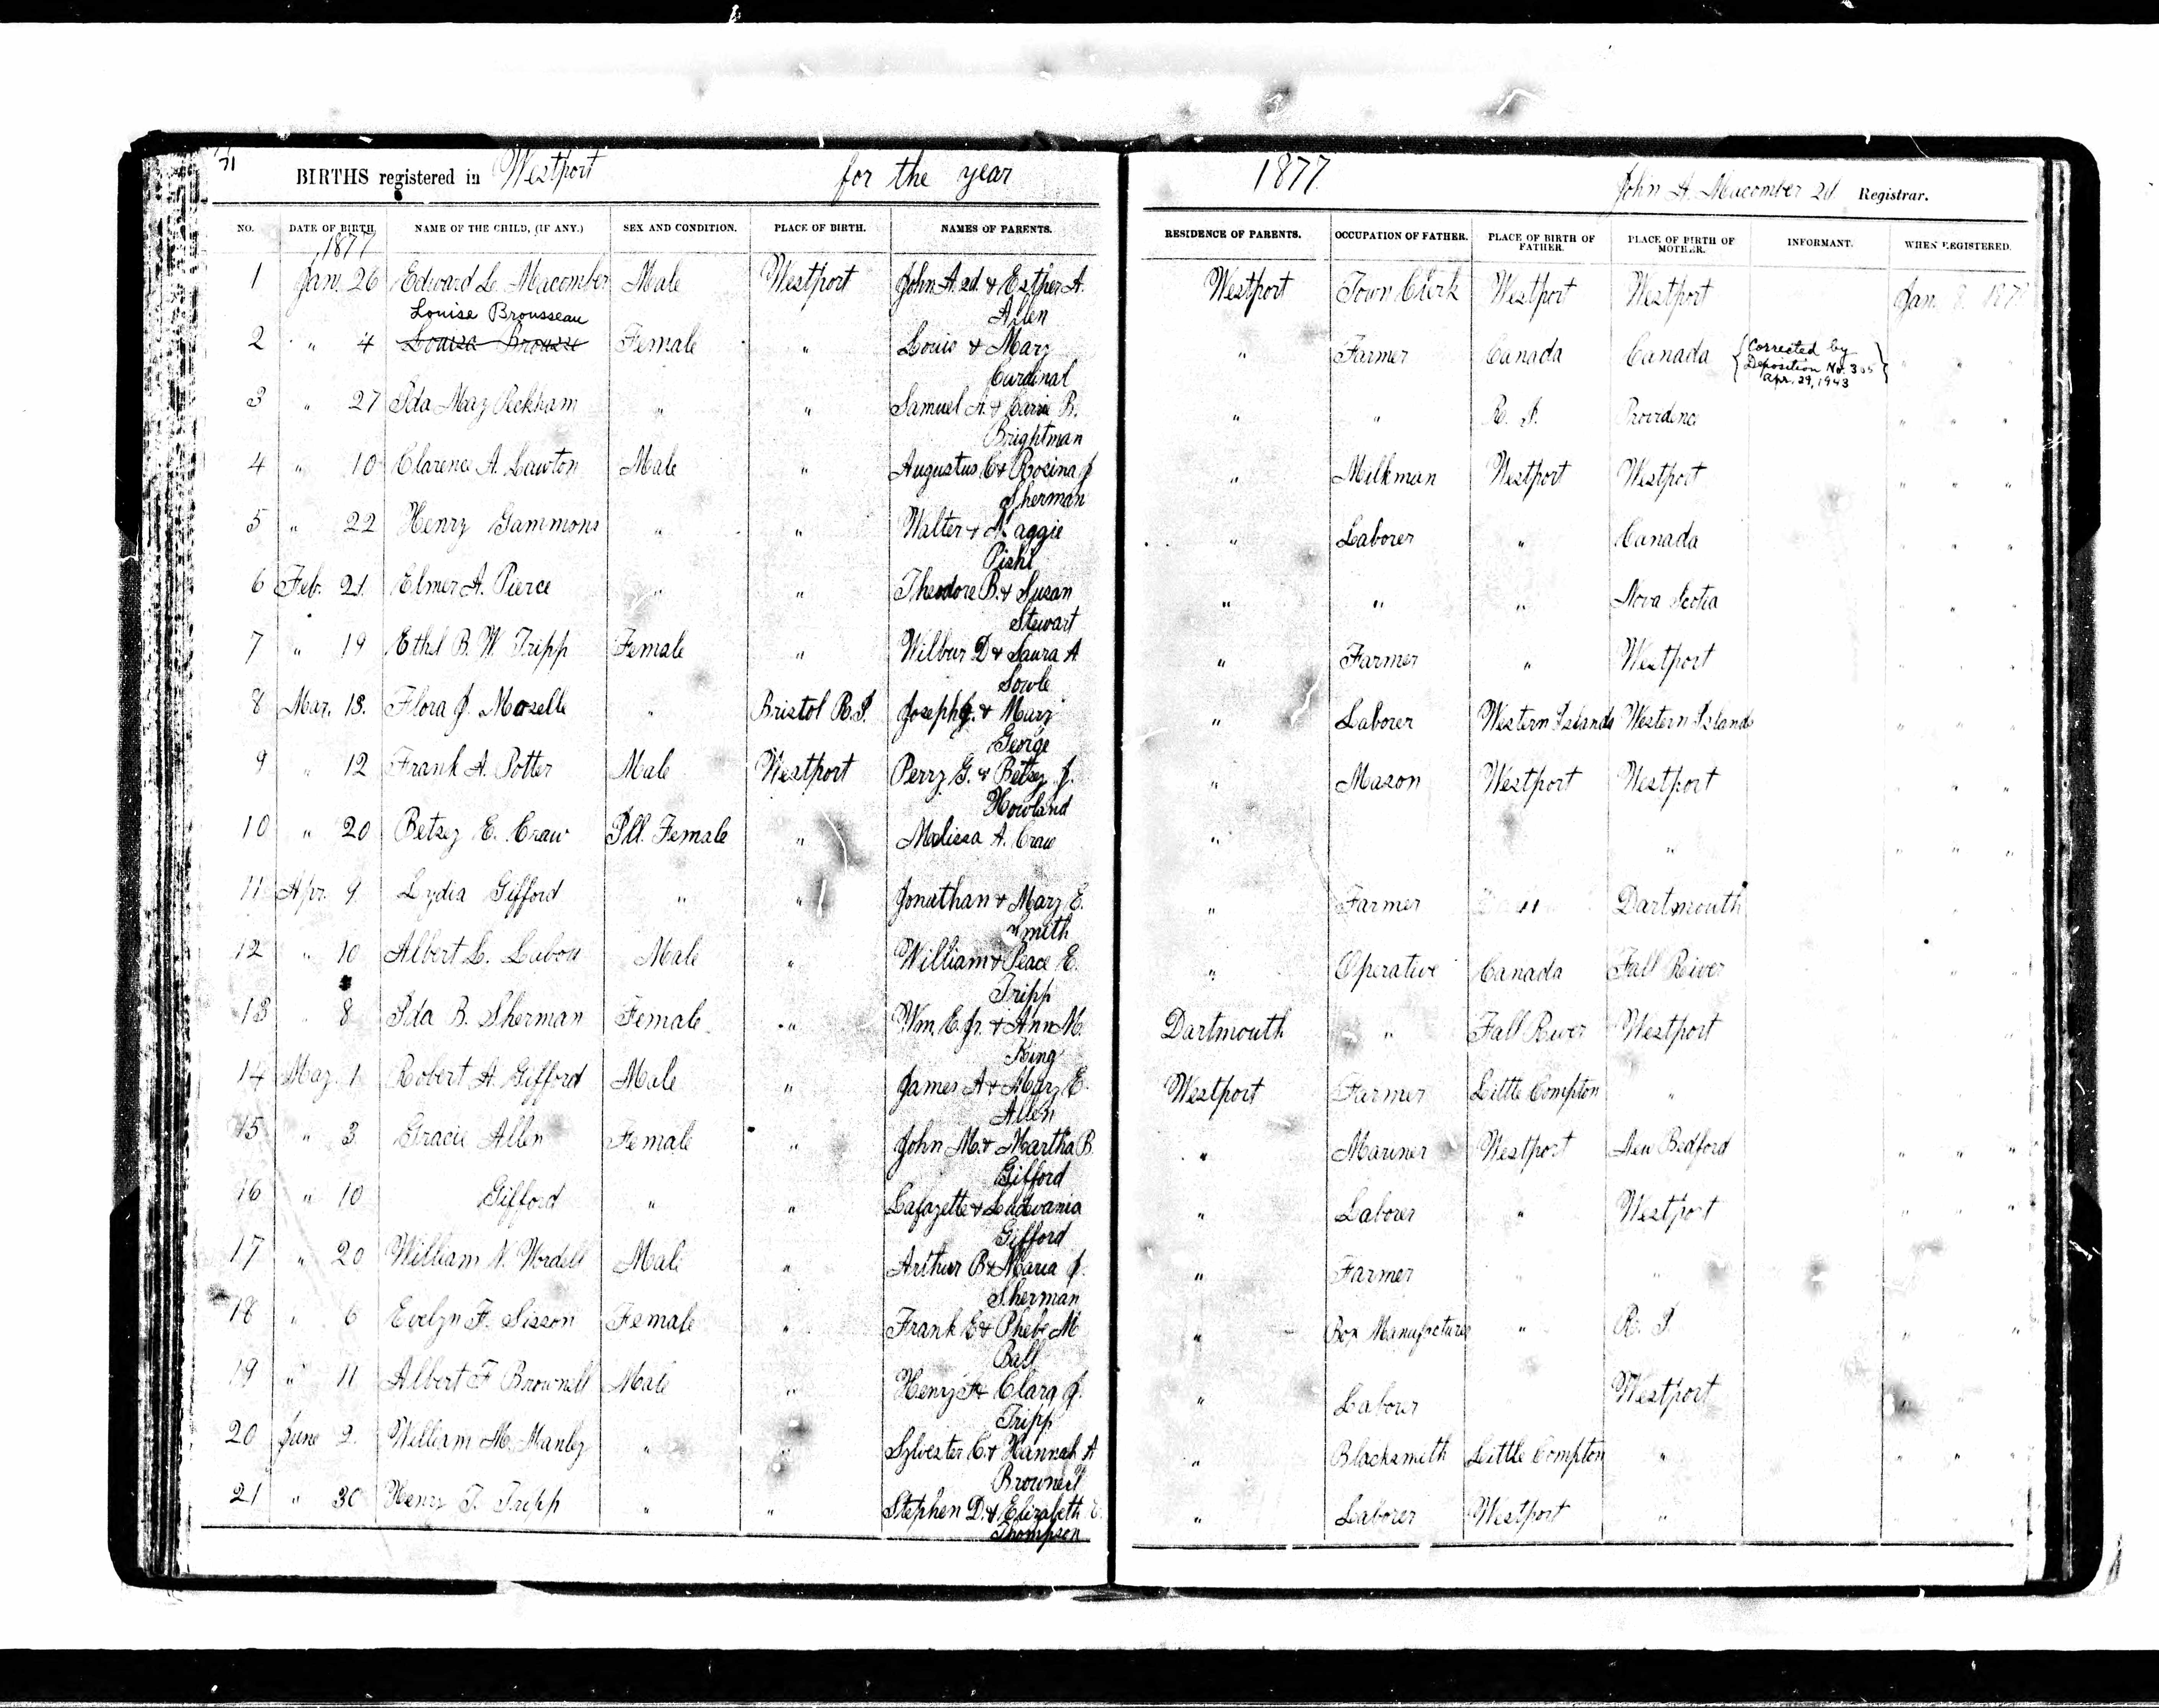 71
BIRTHS registered in Westport for the year 1877 John A. Macomber 2d. Registrar.
NO. DATE OF BIRTH. NAME OF THE CHILD, (IF ANY.) SEX AND CONDITION. PLACE OF BIRTH. NAMES OF PARENTS. RESIDENCE OF PARENTS. OCCUPATION OF FATHER. PLACE OF BIRTH OF FATHER. PLACE OF BIRTH OF MOTHER. INFORMANT. WHEN REGISTERED.
1877
1 Jan. 26 Edward L. Macomber Male Westport John A. 2d. & Esther A. Westport Town Clerk Westport Westport Jan. 8.
Louise Brousseau Allen
2 " 4 Louisa Brousse Female " Louis & Mary " Farmer Canada Canada {Corrected by Deposition No. 305 Apr. 29, 1943} " " "
Cardinal
3 " 27 Ida May Peckham " " Samuel A. & Carrie B. " " R. I. Providence " " "
Brightman
4 " 10 Clarence A. Lawton Male " Augustus C & Rosina J " Milkman Westport Westport " " "
Sherman
5 " 22 Henry Gammons " " Walter & Maggie " Laborer " Canada " " "
6 Feb. 21. Elmer A. Pierce " " Theodore B. & Susan " " " Nova Scotia " " "
Stewart
7 " 19 Ethel B. W. Tripp Female " Wilbur D & Laura A " Farmer " Westport " " "
Sowle
8 Mar. 13. Flora J. Moselle " Bristol R.I. Joseph J. & Mary " Laborer Western Islands Western Islands " " "
George
9 " 12 Frank A. Potter Male Westport Perry G. & Betsey J. " Mason Westport Westport " " "
Howland
10 " 20 Betsey E. Craw Ill. Female " Malissa A. Craw " " " " "
11 Apr. 9 Lydia Gifford " " Jonathan & Mary E. " Farmer Dartmouth " "
Smith
12 " 10 Albert L. Male " William & Peace E. " Operative Canada Fall River " "
Tripp
13 " 8 Ida B. Sherman Female " Wm. E. Jr. & Ann M. Dartmouth " Fall River Westport " "
King
14 May 1 Robert A. Gifford Male " James A & Mary E. Westport Farmer Little Compton " " "
Allen
15 " 3 Gracie Allen Female " John M. & Martha B. " Mariner Westport New Bedford " " "
Gifford
16 " 10 Gifford " " Lafayette & " Laborer " Westport " " "
Gifford
17 " 20 William N. Wordell Male " Arthur B & Maria J. " Farmer " "
Sherman
18 " 6 Evelyn F. Sisson Female " Frank E & Phebe M " Box Manufacturer " R. I. " "
Ball
19 " 11 Albert F Brownell Male " Henry F & Clara J. " Laborer Westport
Tripp
20 June 2. William M. Manley " " Sylvester C. & Hannah A " Blacksmith Little Compton " " " "
Brownell
21 " 30 Henry T. Tripp " " Stephen D. & Elizabeth " Laborer Westport " " "
Thompson